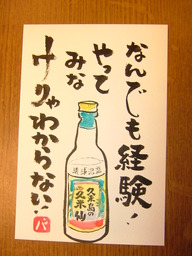 なんでも経験!
やって
みな
けりゃわからない!
琉球泡盛
久米島の
久米仙
パ